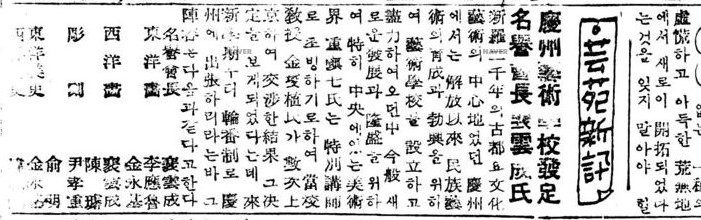 虛慌하고 아득한 荒無地
에서 새로이 開拓되였다
는것을 잊지 말아야 할
芸苑新訊
慶州藝術學校發足
名譽會長 裵雲成氏
新羅一千年의 古都요 文化
藝術의 中心地였던 慶州
에서는 解放以來 民族藝
術의 育成과 勃興을 위하
여 藝術學校를 設立하고
盡力하여오던中 今般 새
로운 發展과 隆盛을 위하
여 特히 中央에있는 美術
界 重鎭七氏는 特別講師
로 초빙하기로하여 當校
敎授 金 植氏가 數次上
京하여 交涉한 結果 그 決
定을 보게되였다는데 來
新學期부터 輪番制로 慶
州에 出張하리라는바 그
陣容은 다음과같다고한다
名譽會長 裵雲成
東洋畵 李應魯
金永基
西洋畵 裵雲成
陳
彫刻 尹孝重
東洋美史 金永基